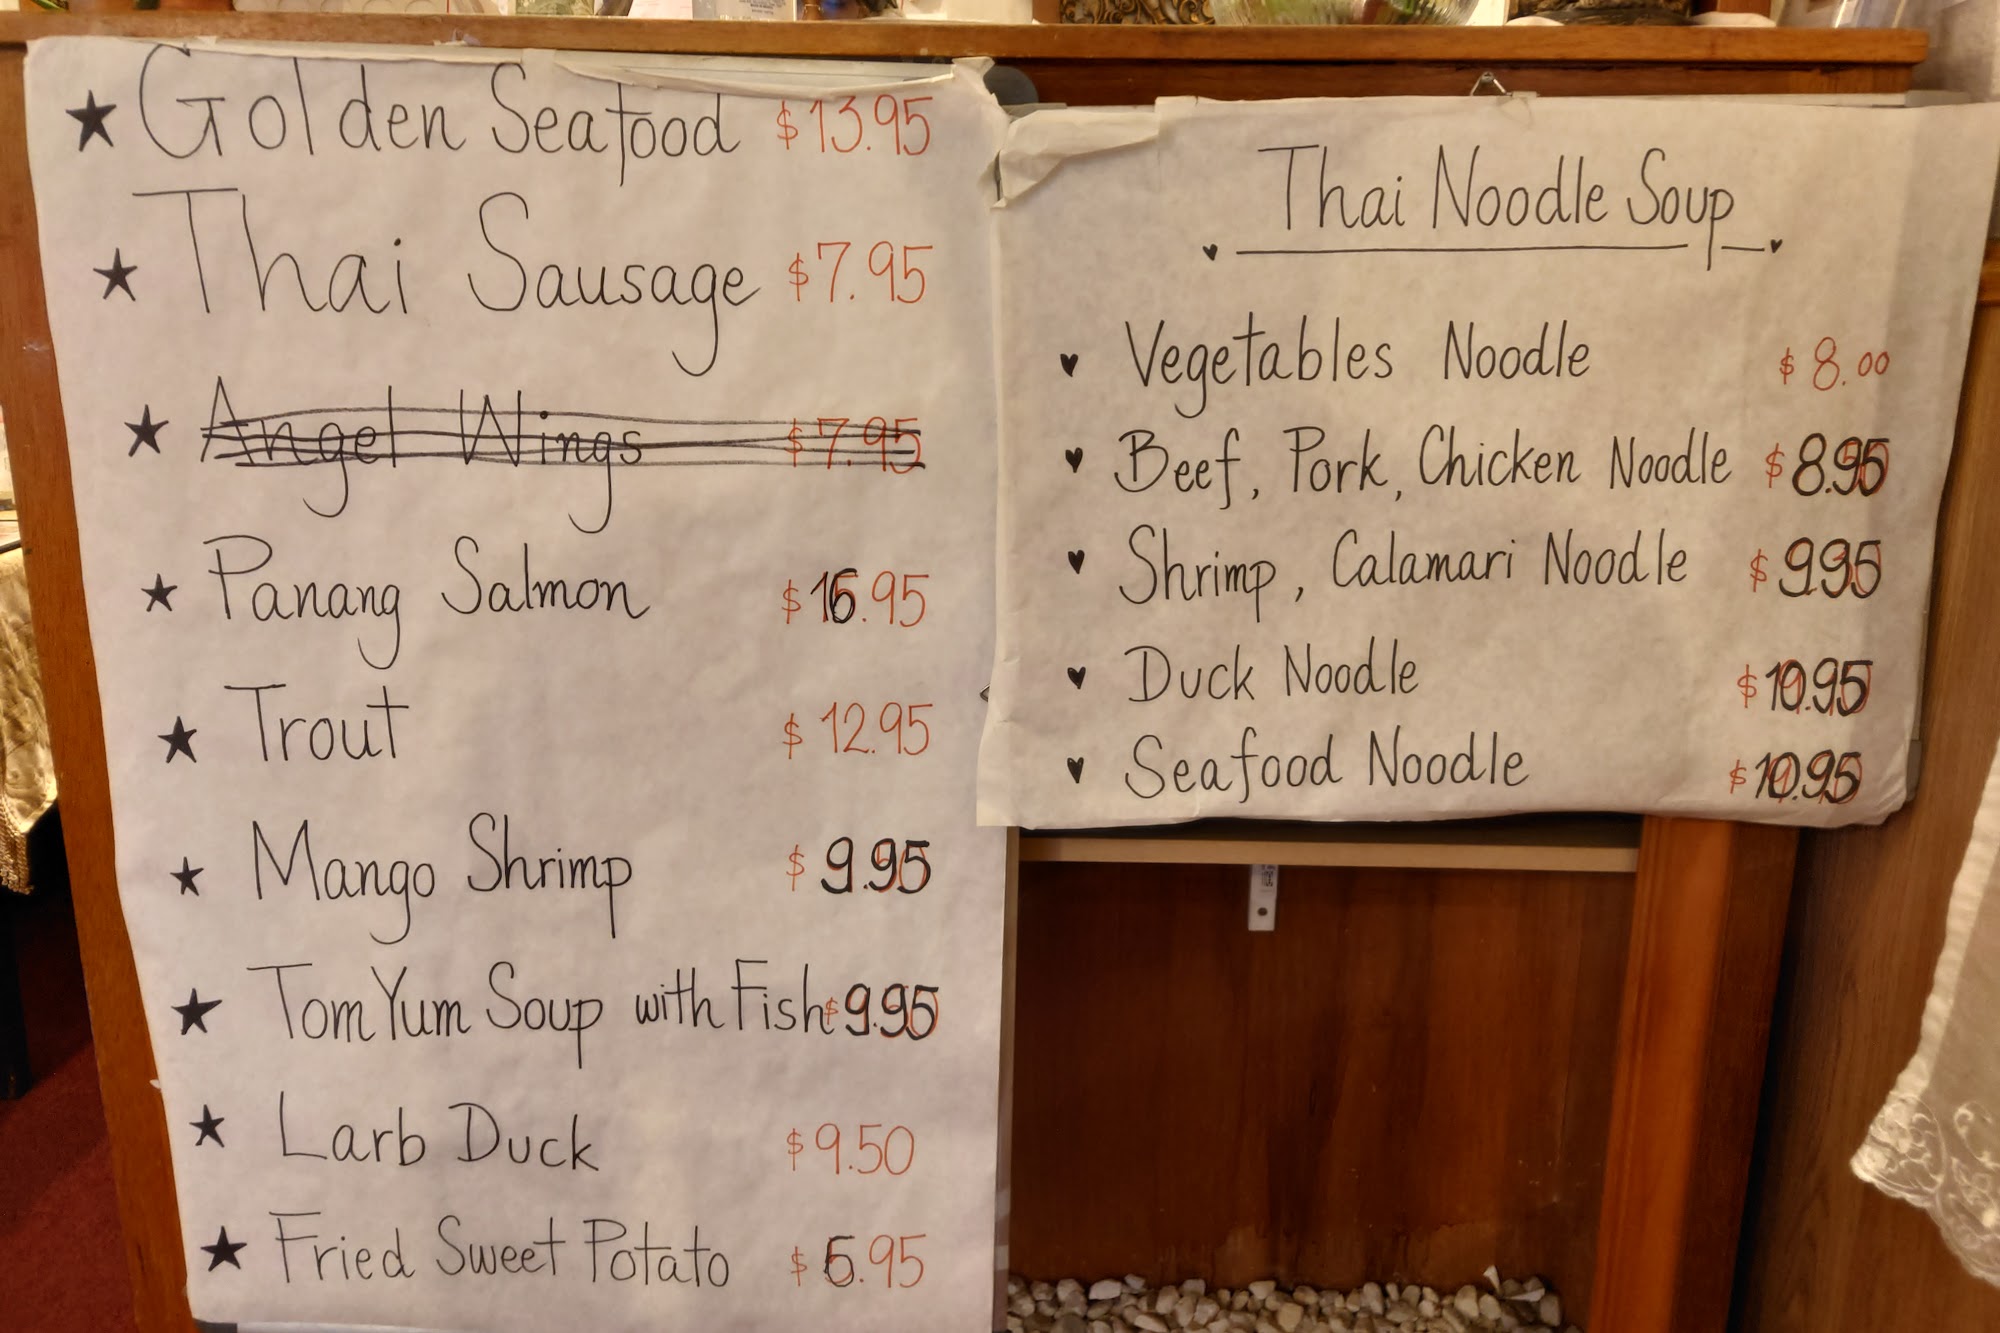 ★ Golden Seafood $13.95
★ Thai Sausage $7.95
★ Angel Wings $7.95
★ Panang Salmon $16.95
★ Trout $12.95
★ Mango Shrimp $9.95
★ Tom Yum Soup with Fish $9.95
★ Larb Duck $9.50
★ Fried Sweet Potato $6.95
Thai Noodle Soup
♥ Vegetables Noodle $8.00
♥ Beef, Pork, Chicken Noodle $8.95
♥ Shrimp, Calamari Noodle $9.95
♥ Duck Noodle $10.95
♥ Seafood Noodle $10.95